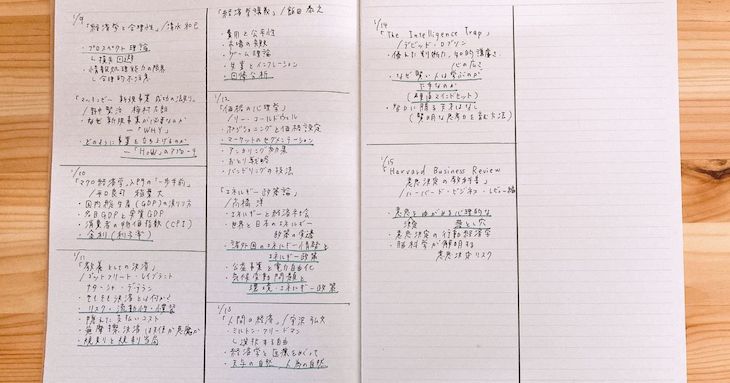 1/9
「経済学と合理性」/清水和巳
・プロスペクト理論
↳損失回避
・情報処理能力の限界
↳合理的不注意
「マッキンゼー 新規事業 成功の法則」
・なぜ新規事業が必要なのか
―「WHY」
どのように事業を立ち上げるのか
―「HOW」のアプローチ
1/10
「マクロ経済学 入門の「一歩手前」」
・国内総生産(GDP)の測り方
・名目GDPと実質GDP
・消費者物価指数(CPI)
・金利(利子率)
1/11
「教養としての決済」
/ゴットフリート・レイブラント
ナターシャ・デテラン
・そもそも決済とは何か
・リスク・流動性・慣習
・隠れた支払いコスト
・規制と規制当局
「経済学講義」/飯田泰之
・費用と公平性
・市場の失敗
・ゲーム理論
・失業とインフレーション
・回帰分析
1/12
「価格の心理学」
/リー・コールドウェル
・ポジショニングと価格設定
・マーケットのセグメンテーション
・アンカリング効果
・おとり戦略
・バンドリングの技法
「エネルギー政策論」
/高橋洋
・エネルギーと経済社会
・世界と日本のエネルギー
政策の変遷
・諸外国のエネルギー情勢と
エネルギー政策
・公益事業と電力自由化
・気候変動問題と
環境・エネルギー政策
1/13
「人間の経済」/宇沢弘文
・ミルトン・フリードマン
↳選択する自由
・経済学と医療をめぐって
・天与の自然、人為の自然
1/14
「The Intelligence Trap」
/デビッド・ロブソン
・優れた判断力、知的謙虚さ、
心の広さ
・なぜ賢い人は学ぶのが
下手なのか
(硬直マインドセット)
1/15
「Harvard Business Review
意思決定の教科書」
/ハーバード・ビジネス・レビュー編
・意思をゆがめる心理的な
落とし穴
・意思決定の行動経済学
・脳科学が解明する
意思決定リスク